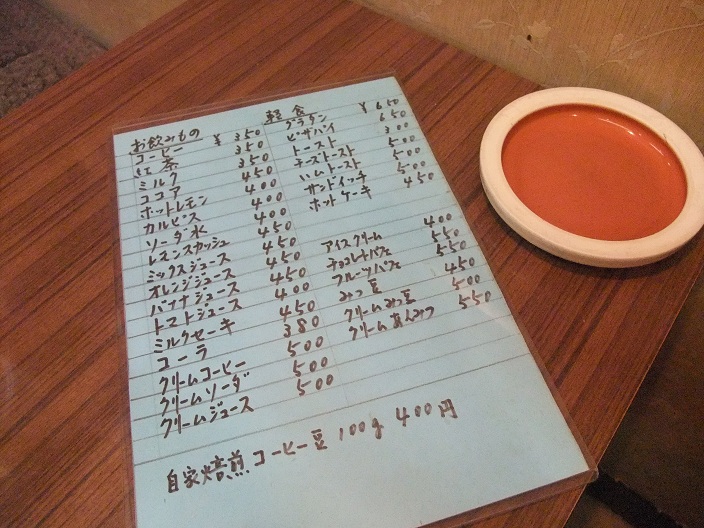 お飲みもの
コーヒー ¥350
紅茶 350
ミルク 350
ココア 450
ホットレモン 400
カルピス 400
ソーダ水 400
レモンスカッシュ 450
ミックスジュース 450
オレンジジュース 450
バナナジュース 450
トマトジュース 400
ミルクセーキ 450
コーラ 380
クリームコーヒー 500
クリームソーダ 500
クリームジュース 500
軽食
グラタン ¥650
ピザパイ 650
トースト 300
チーズトースト 500
ハムトースト 500
サンドイッチ 500
ホットケーキ 450
アイスクリーム 400
チョコレートパフェ 550
フルーツパフェ 550
みつ豆 450
クリームみつ豆 500
クリームあんみつ 550
自家焙煎コーヒー豆 100g 400円